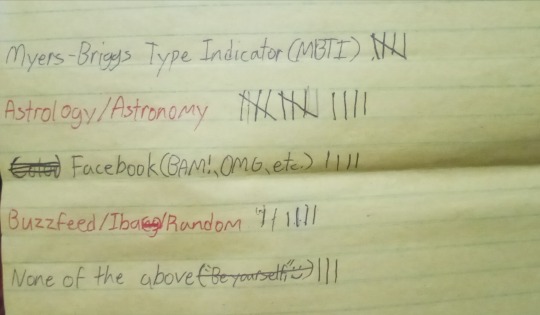 Myers-Briggs Type Indicator (MBTI)
Astrology/Astronomy
Facebook (BAM!, OMG, etc.)
Buzzfeed/Random
None of the above ("Be yourself" :))